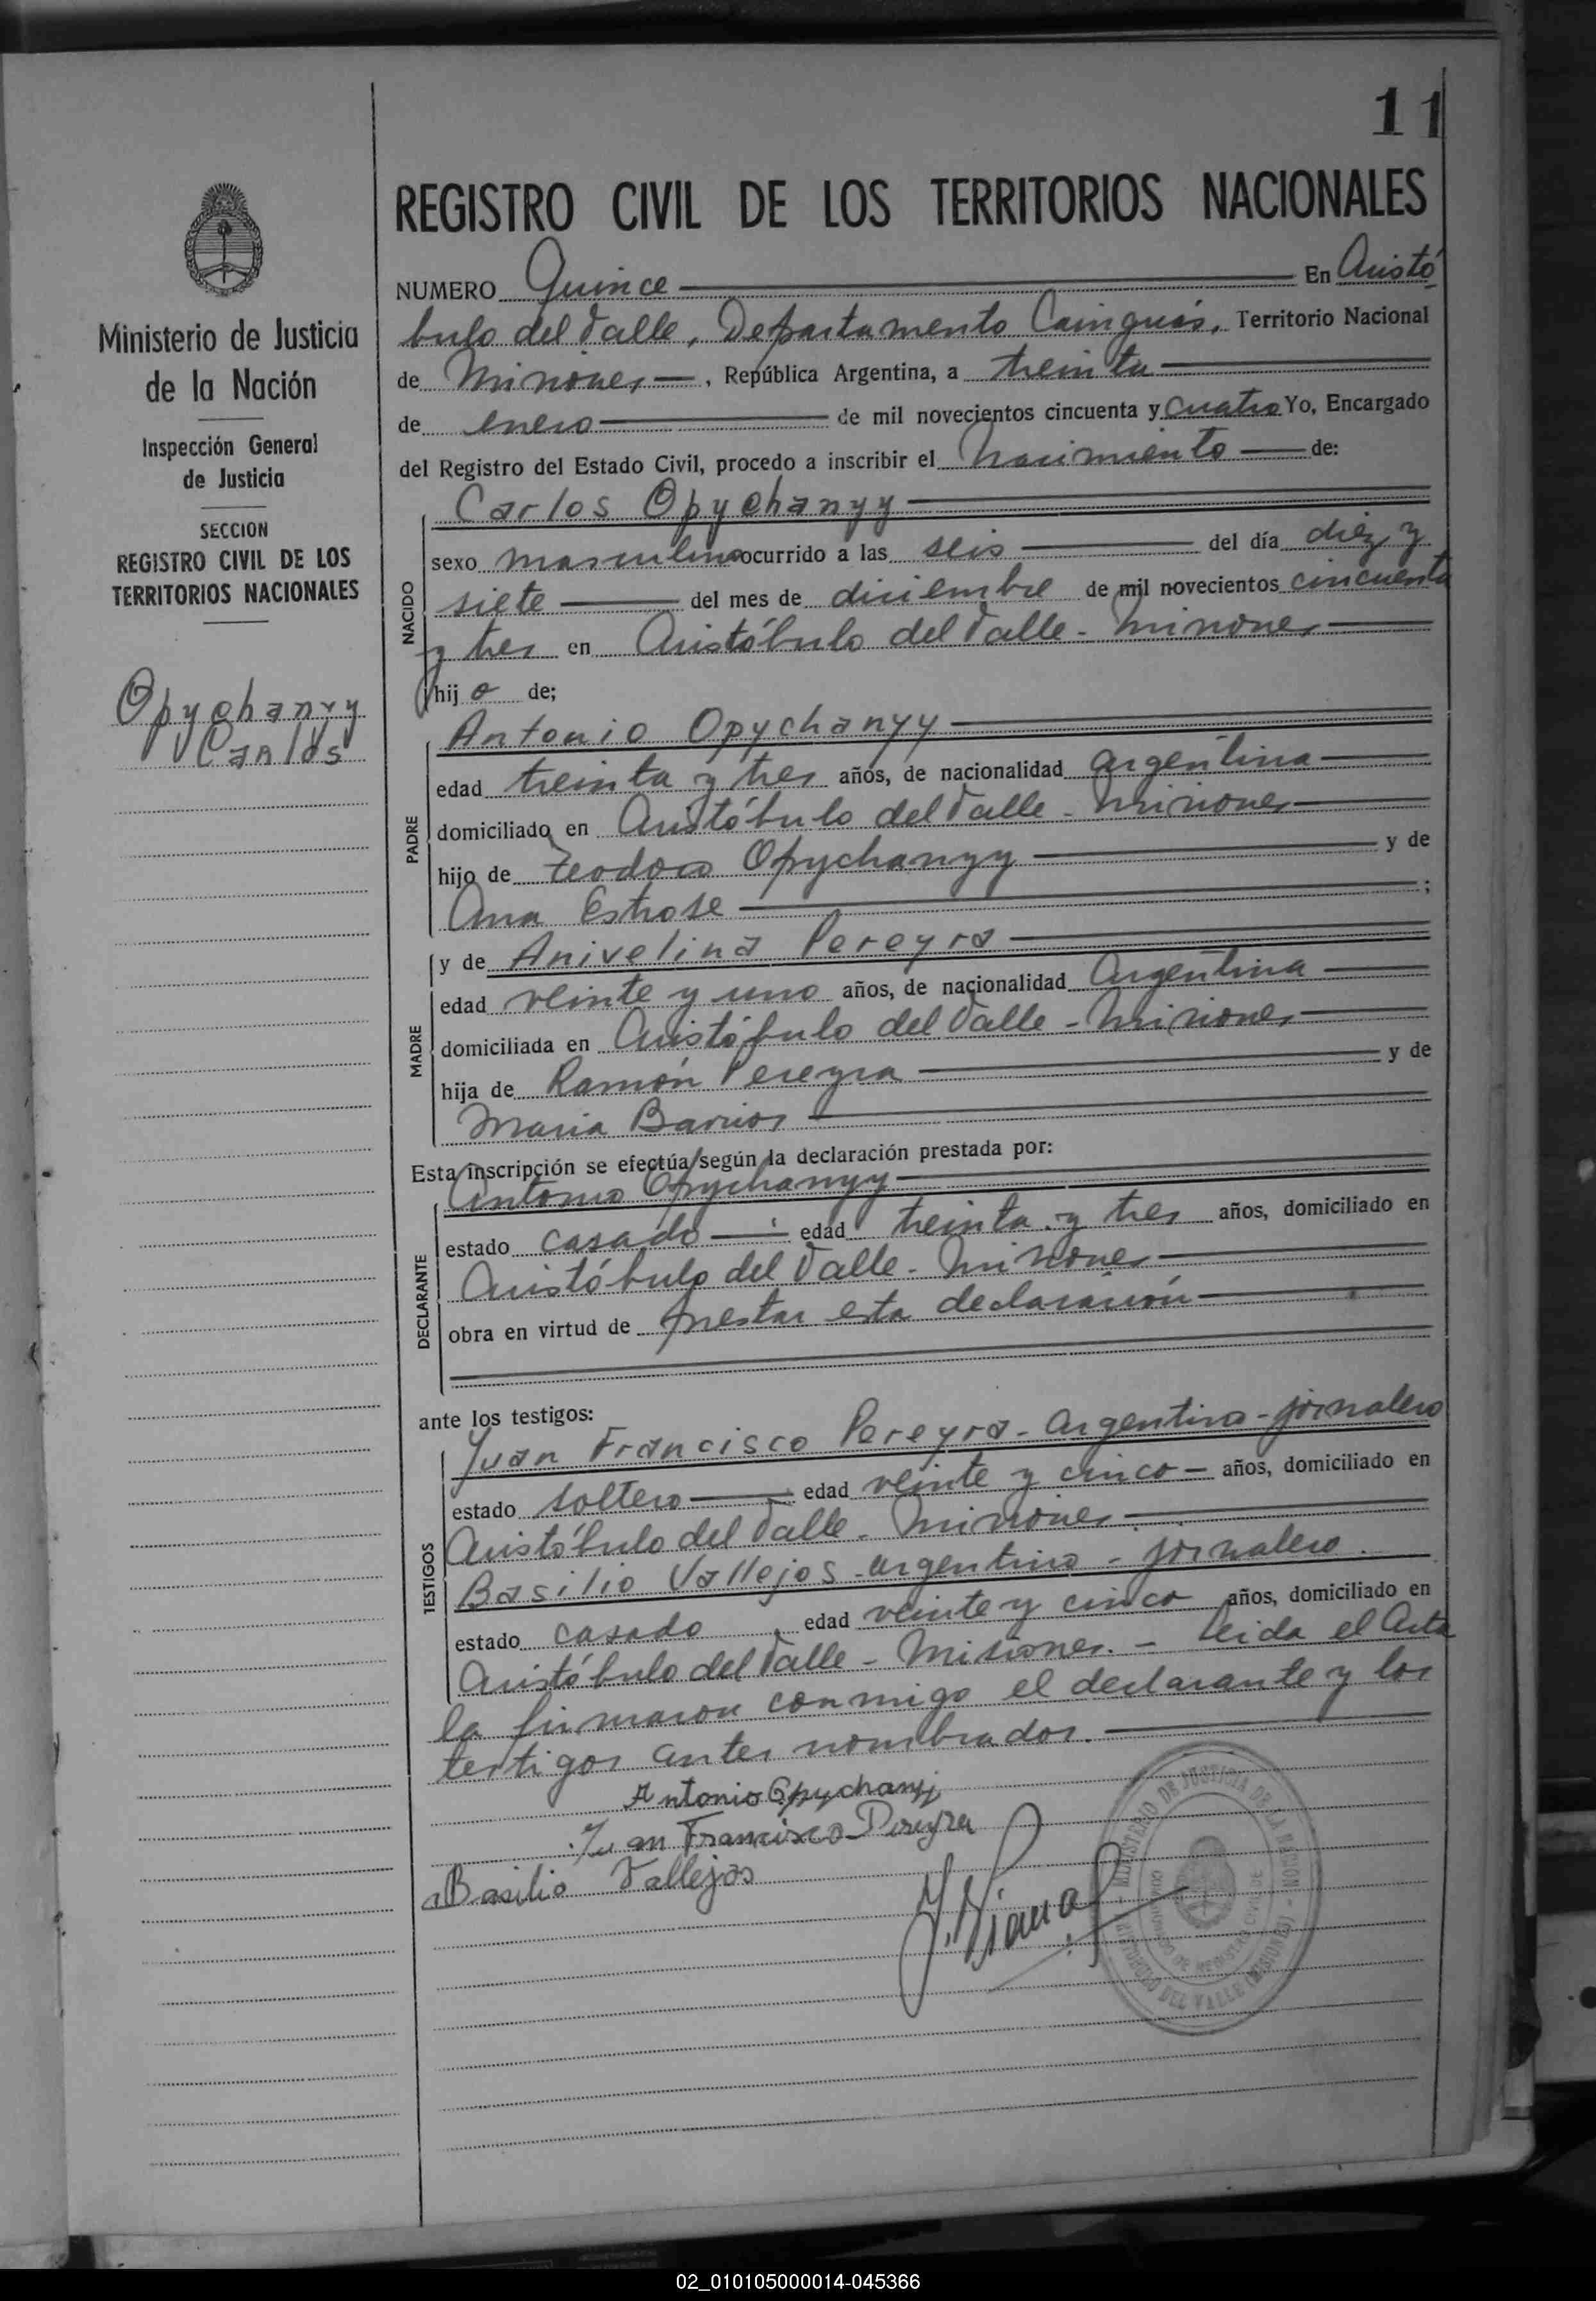 11
REGISTRO CIVIL DE LOS TERRITORIOS NACIONALES
Ministerio de Justicia
de la Nación
Inspección General
de Justicia
SECCION
REGISTRO CIVIL DE LOS
TERRITORIOS NACIONALES
Opychanyy
Carlos
NUMERO Quince En Aristó
bulo del Valle, Departamento Cainguás, Territorio Nacional
de Misiones, República Argentina, a treinta
de enero de mil novecientos cincuenta y cuatro Yo, Encargado
del Registro del Estado Civil, procedo a inscribir el Nacimiento de:
NACIDO
Carlos Opychanyy
sexo masculino ocurrido a las seis del día diez y
siete del mes de diciembre de mil novecientos cincuenta
y tres en Aristóbulo del Valle - Misiones
hijo de;
PADRE
Antonio Opychanyy
edad treinta y tres años, de nacionalidad argentina
domiciliado en Aristóbulo del Valle - Misiones
hijo de Teodoro Opychanyy y de
Ana Estrose ;
MADRE
y de Anivelina Pereyra
edad veinte y uno años, de nacionalidad Argentina
domiciliada en Aristóbulo del Valle - Misiones
hija de Ramón Pereyra y de
Maria Barrios
Esta inscripción se efectúa según la declaración prestada por:
DECLARANTE
Antonio Opychanyy
estado casado edad treinta y tres años, domiciliado en
Aristóbulo del Valle - Misiones
obra en virtud de prestar esta declaración
ante los testigos:
TESTIGOS
Juan Francisco Pereyra - Argentino - jornalero
estado soltero edad veinte y cinco - años, domiciliado en
Aristóbulo del Valle - Misiones
Basilio Vallejos - argentino - jornalero.
estado casado edad veinte y cinco años, domiciliado en
Aristóbulo del Valle - Misiones. - Leida el Acta
la firmaron conmigo el declarante y los
testigos antes nombrados.
Antonio Opychanyj
Juan Francisco Pereyra
Basilio Vallejos
MINISTERIO DE JUSTICIA DE LA NACION
ARISTOBULO DEL VALLE (MISIONES)
DE REGISTRO CIVIL DE
02_010105000014-045366